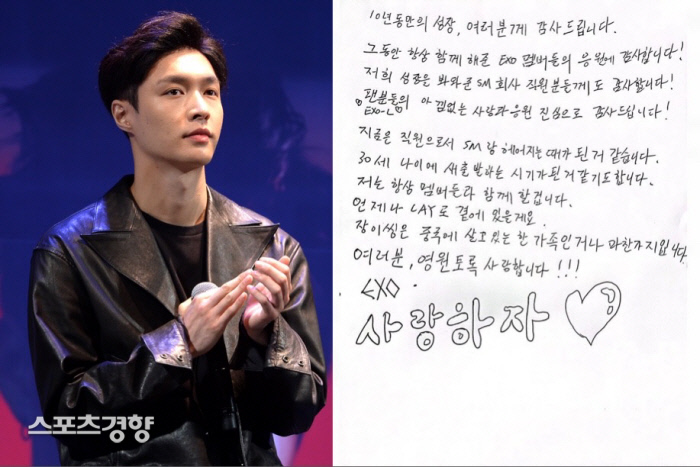 10년동안의 성장, 여러분께 감사드립니다.
그동안 항상 함께 해준 EXO 멤버들의 응원에 감사합니다!
저희 성장은 봐와준 SM 회사 직원분들께도 감사합니다!
팬분들의 아낌없는 사랑과 응원 진심으로 감사드립니다!
EXO-L
지금은 직원으로서 SM랑 헤어지는 때가 된거 같습니다.
30세 나이에 새출발하는 시기가 된거 같기도합니다.
저는 항상 멤버들과 함께 할겁니다.
언제나 LAY로 곁에 있을게요.
장이씽은 중국에 살고 있는 한 가족인거나 마찬가지입니다.
여러분, 영원토록 사랑합니다!!!
EXO.
사랑하자
스포츠경향